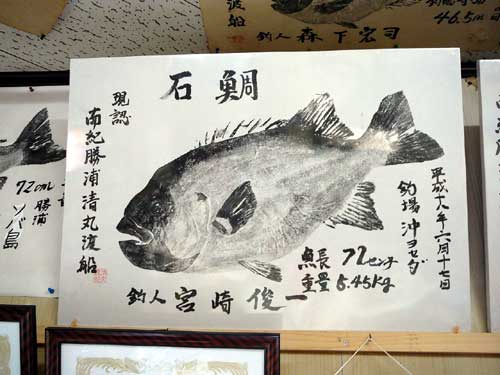 石鯛
平成十八年六月十七日
釣場 沖ヨセダ
魚長 72センチ
重量 5.45kg
現認
南紀勝浦清丸渡船
釣人 宮崎俊一
渡船
釣人 森下宏司
46.5cm
72cm
勝浦
ソバ島